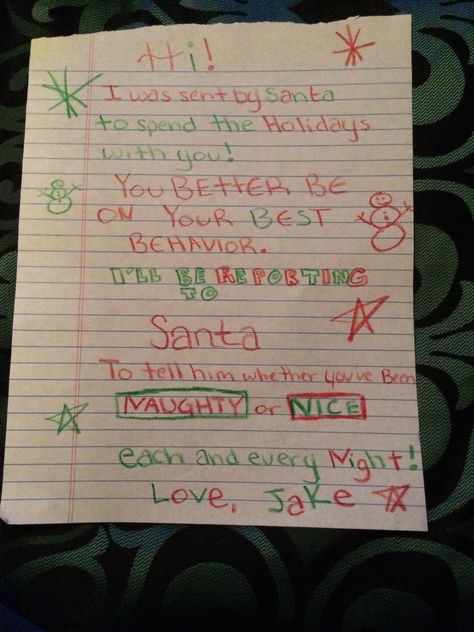 Hi!
I was sent by Santa
to spend the Holidays
with you!
YOU BETTER BE
ON YOUR BEST
BEHAVIOR.
I'LL BE REPORTING
TO
Santa
To tell him whether you've Been
NAUGHTY or NICE
each and every Night!
Love, Jake